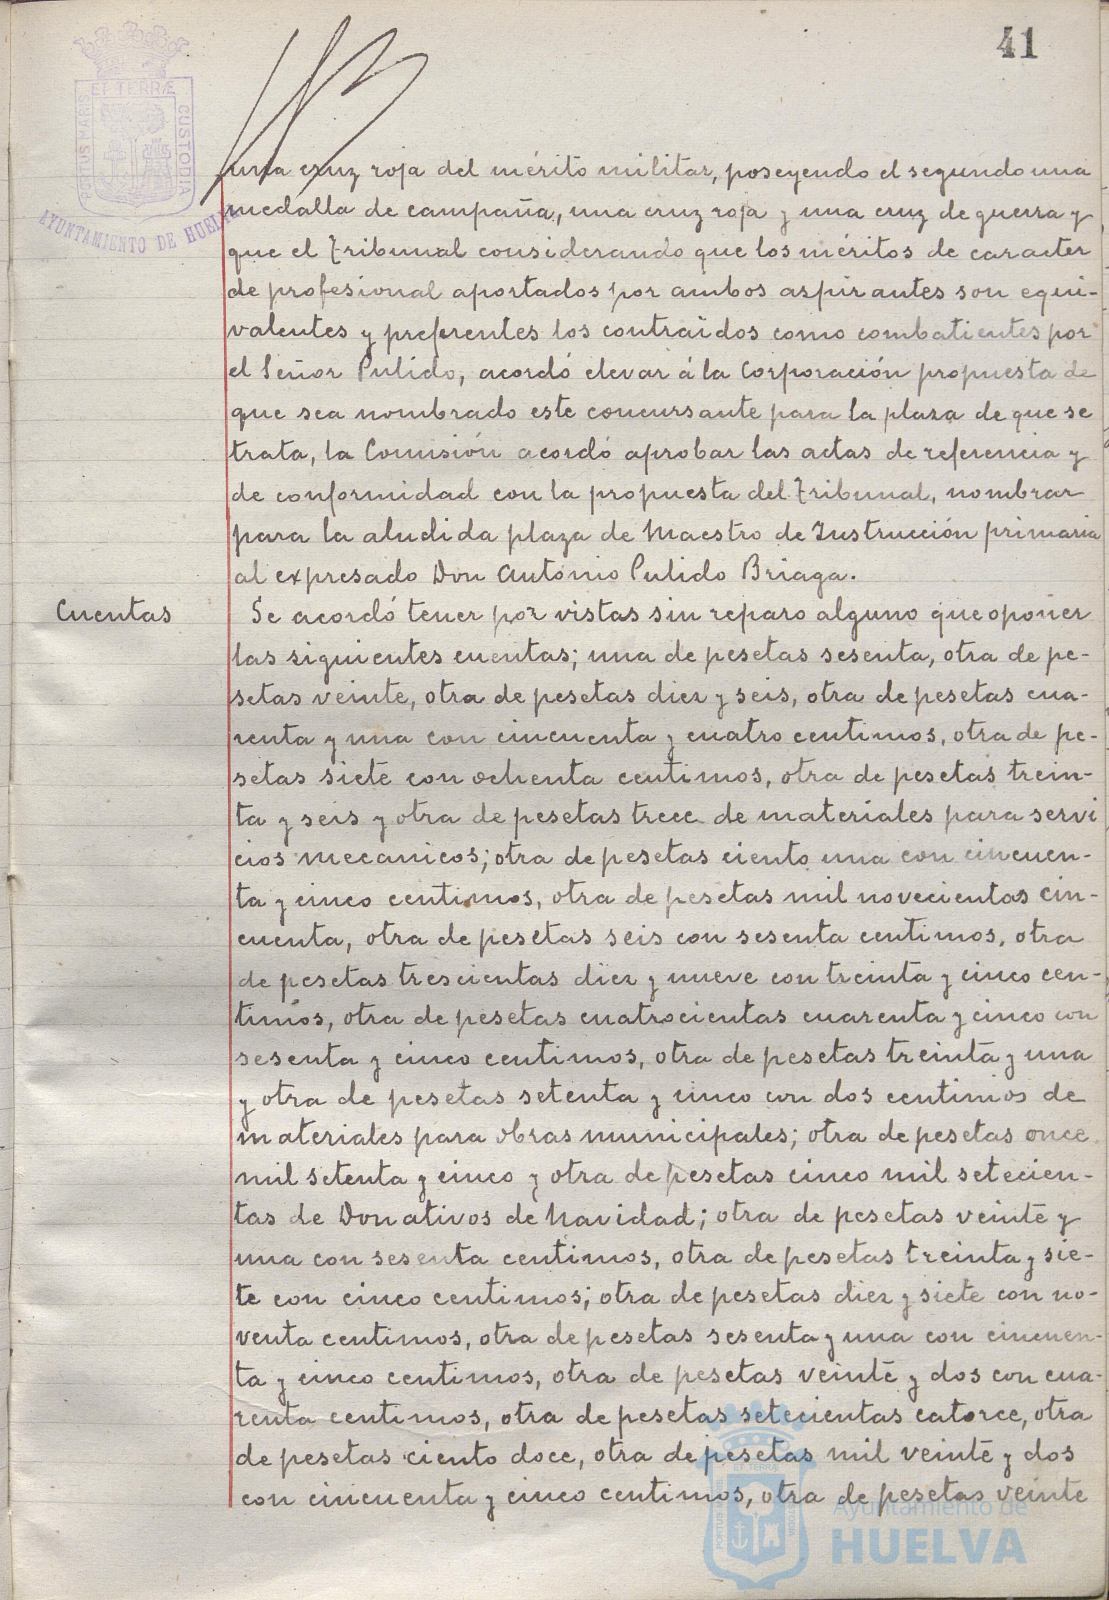 41
ET TERRÆ
PORTUS MARIS
CUSTODIA
AYUNTAMIENTO DE HUELVA
una cruz roja del mérito militar, poseyendo el segundo una
medalla de campaña, una cruz roja y una cruz de guerra y
que el Tribunal considerando que los méritos de caracter
de profesional aportados por ambos aspirantes son equi-
valentes y preferentes los contraidos como combatientes por
el Señor Pulido, acordó elevar á la Corporación propuesta de
que sea nombrado este concursante para la plaza de que se
trata, la Comisión acordó aprobar las actas de referencia y
de conformidad con la propuesta del Tribunal, nombrar
para la aludida plaza de Maestro de Instrucción primaria
al expresado Don Antonio Pulido Briaga.
Cuentas
Se acordó tener por vistas sin reparo alguno que oponer
las siguientes cuentas; una de pesetas sesenta, otra de pe-
setas veinte, otra de pesetas diez y seis, otra de pesetas cua-
renta y una con cincuenta y cuatro centimos, otra de pe-
setas siete con ochenta centimos, otra de pesetas trein-
ta y seis y otra de pesetas trece de materiales para servi
cios mecanicos; otra de pesetas ciento una con cincuen-
ta y cinco centimos, otra de pesetas mil novecientas cin-
cuenta, otra de pesetas seis con sesenta centimos, otra
de pesetas trescientas diez y nueve con treinta y cinco cen-
timos, otra de pesetas cuatrocientas cuarenta y cinco con
sesenta y cinco centimos, otra de pesetas treinta y una
y otra de pesetas setenta y cinco con dos centimos de
materiales para obras municipales; otra de pesetas once
mil setenta y cinco y otra de pesetas cinco mil setecien-
tas de Donativos de Navidad; otra de pesetas veinte y
una con sesenta centimos, otra de pesetas treinta y sie-
te con cinco centimos; otra de pesetas diez y siete con no-
venta centimos, otra de pesetas sesenta y una con cincuen-
ta y cinco centimos, otra de pesetas veinte y dos con cua-
renta centimos, otra de pesetas setecientas catorce, otra
de pesetas ciento doce, otra de pesetas mil veinte y dos
con cincuenta y cinco centimos, otra de pesetas veinte
Ayuntamiento de
HUELVA